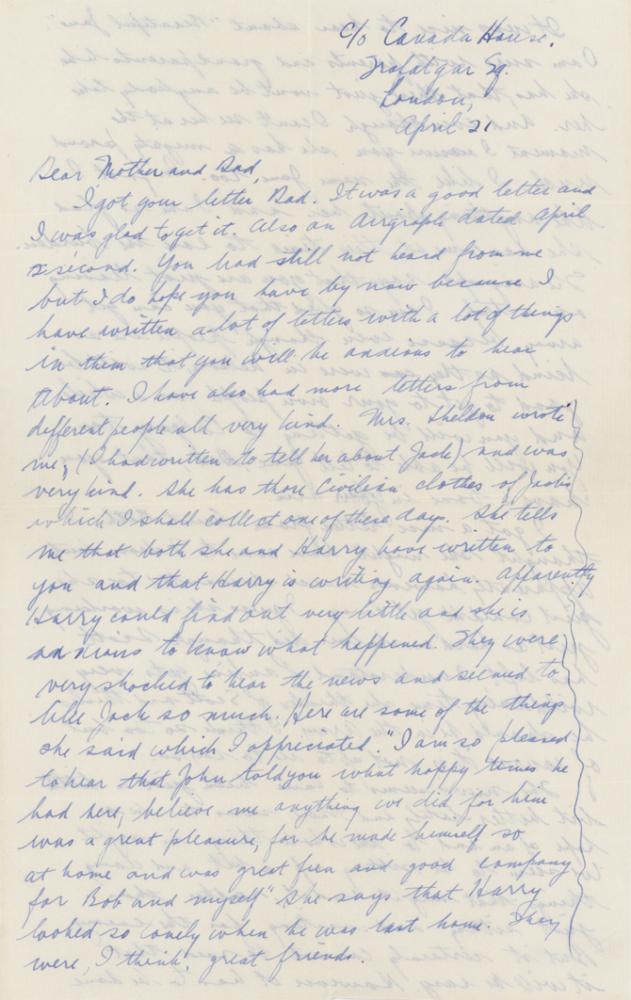 c/o Canada House.
Trafalgar Sq.
London,
April 21
Dear Mother and Dad,
I got your letter Dad. It was a good letter and
I was glad to get it. Also an Airgraph dated April
second. You had still not heard from me
but I do hope you have by now because I
have written a lot of letters with a lot of things
in them that you will be anxious to hear
about. I have also had more letters from
different people all very kind. Mrs. Sheldon wrote
me, (I had written to tell her about Jack) and was
very kind. She has those civilian clothes of Jack's
which I shall collect one of these days. She tells
me that both she and Harry have written to
you and that Harry is writing again. Apparently
Harry could find out very little and she is
anxious to know what happened. They were
very shocked to hear the news and seemed to
like Jack so much. Here are some of the things
she said which I appreciated. "I am so pleased
to hear that John told you what happy times he
had here, believe me anything we did for him
was a great pleasure, for he made himself so
at home and was great fun and good company
for Bob and myself." She says that Harry
looked so lonely when he was last home. They
were, I think, great friends.